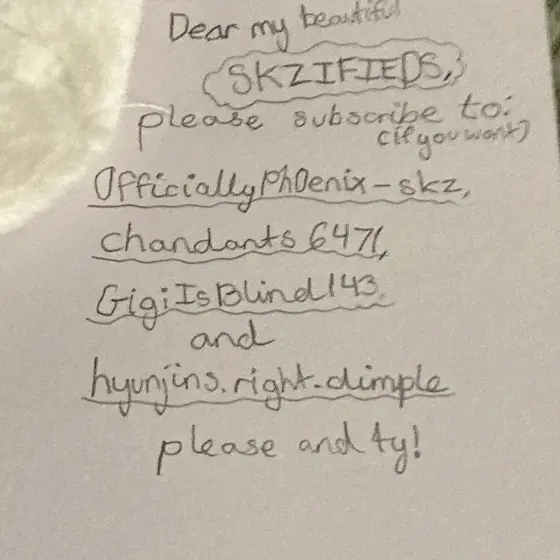 Dear my beautiful
SKZIFIEDS,
please subscribe to:
(if you want)
OfficiallyPhOenix-skz,
chandants6471,
GigiIsBlind143.
and
hyunjins.right.dimple
please and ty!